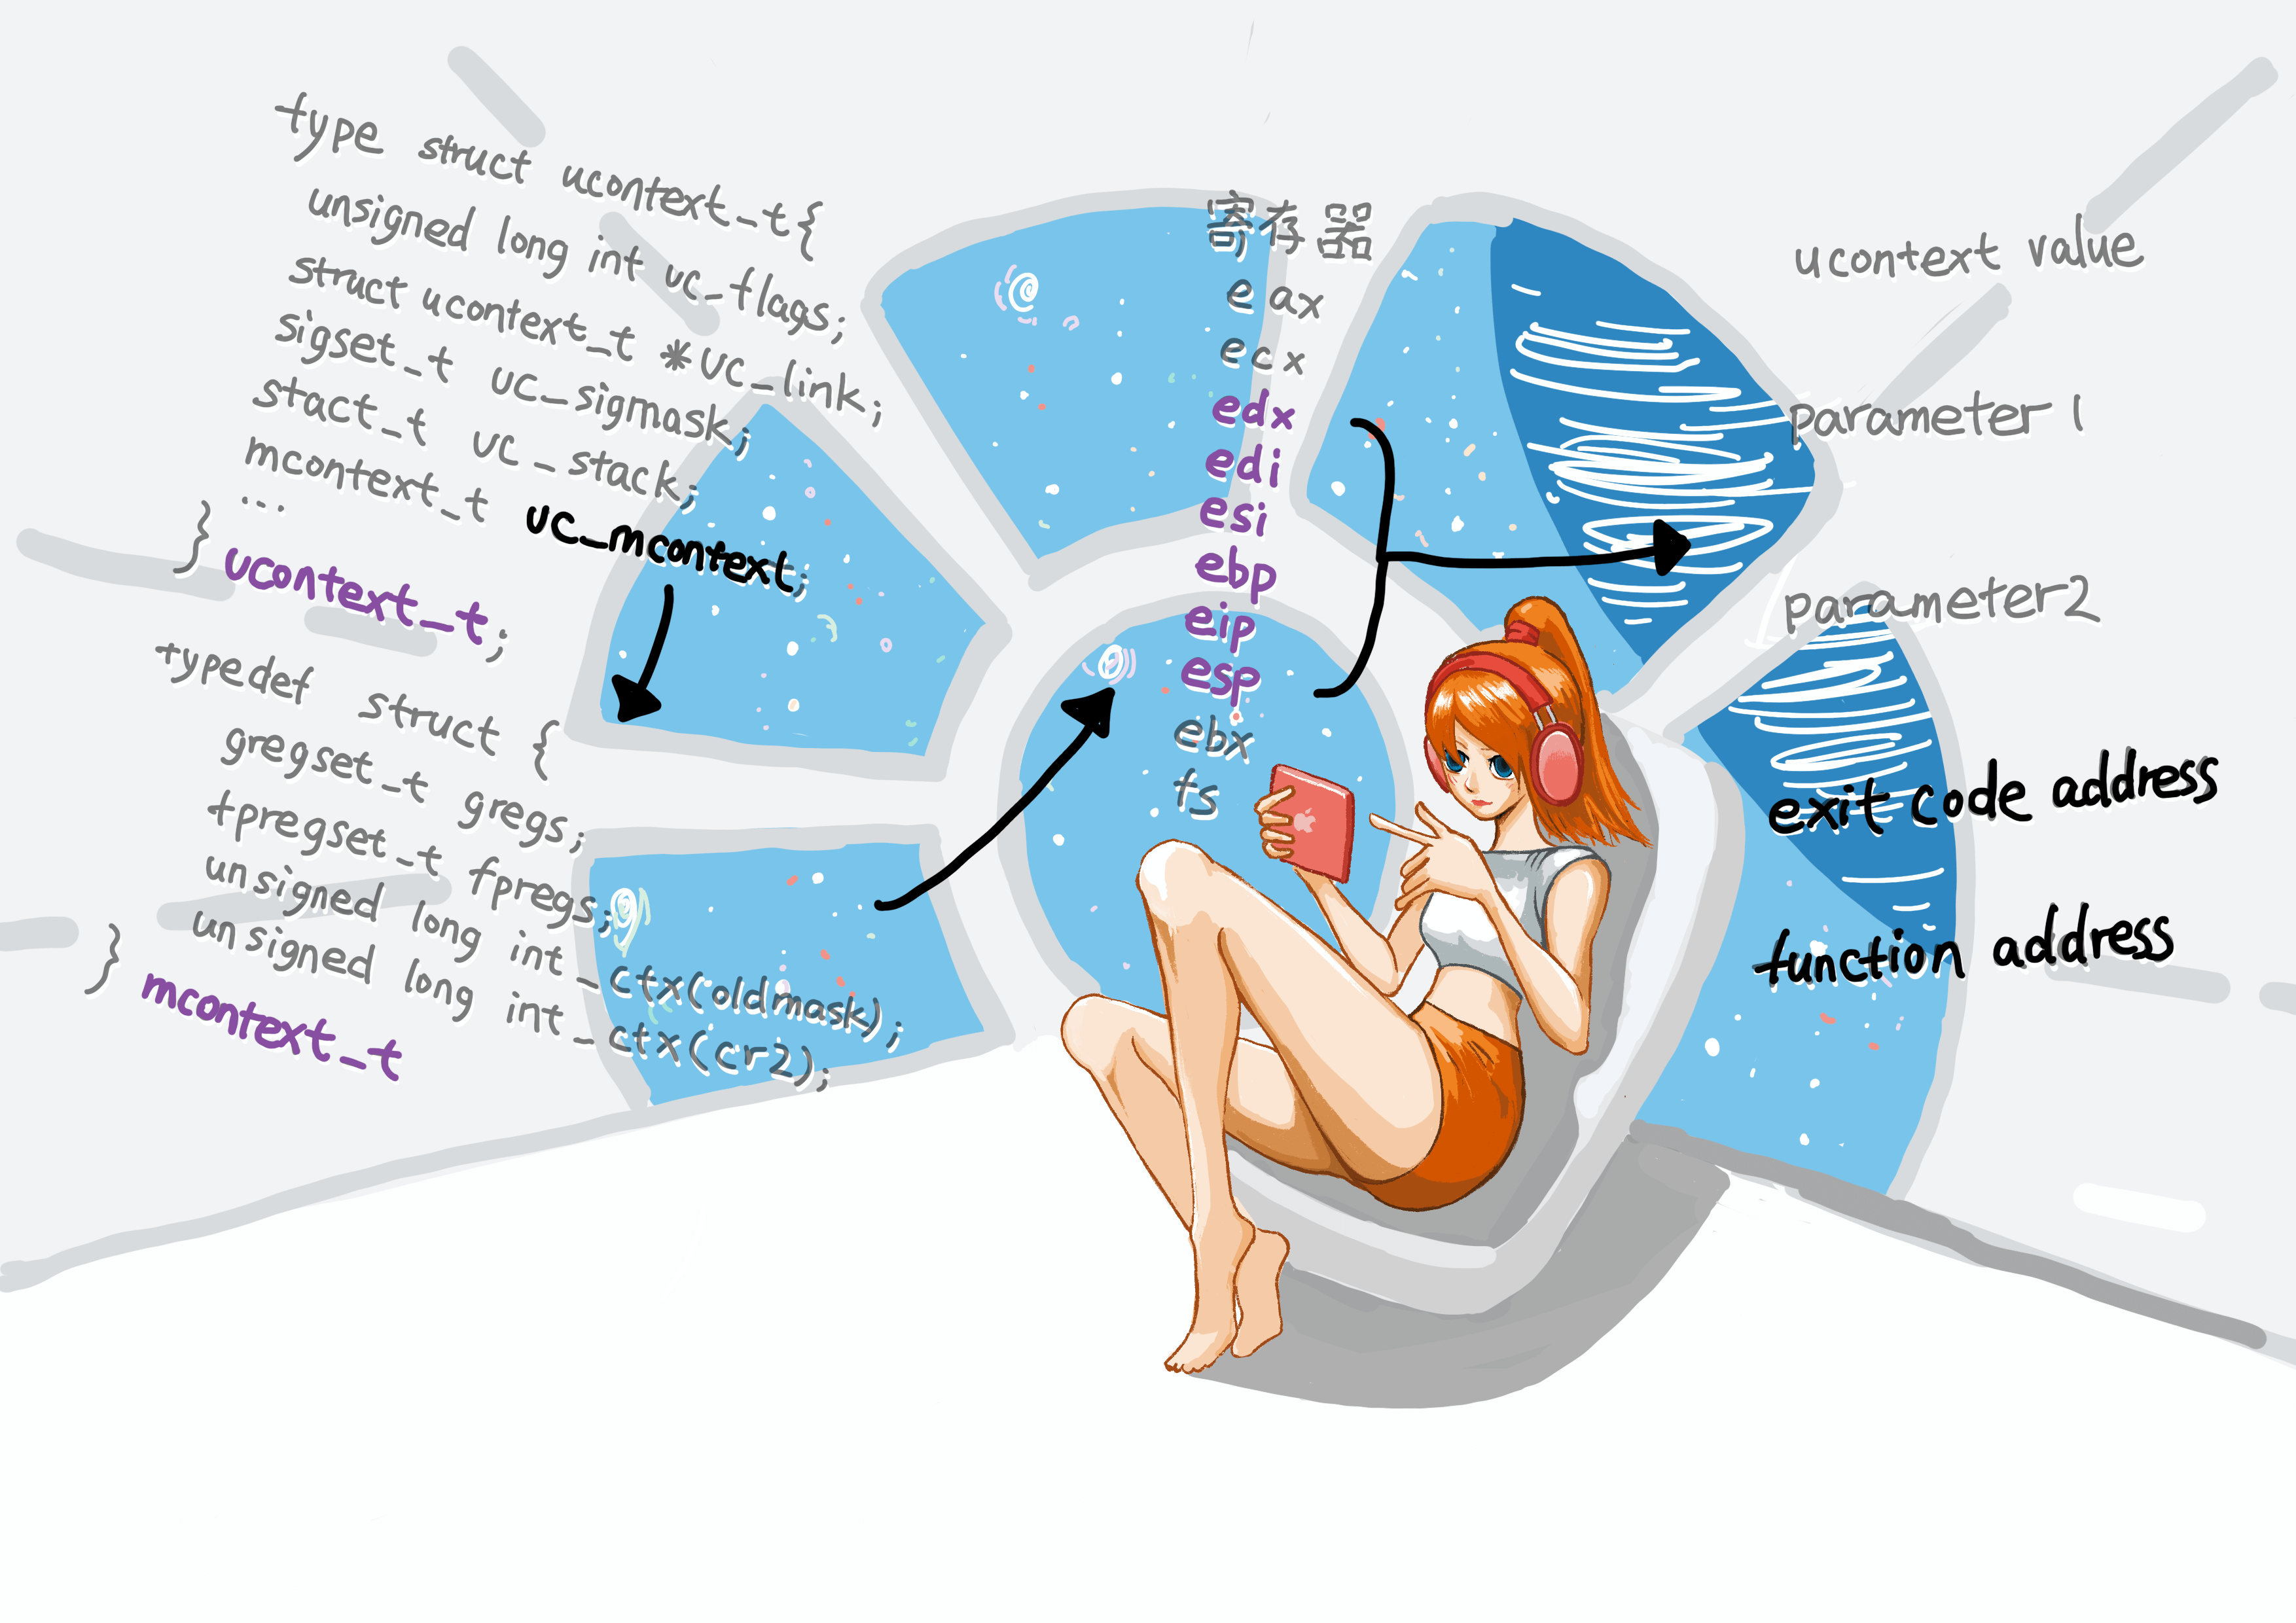 type struct ucontext_t{
unsigned long int uc_flags;
struct ucontext_t *uc_link;
sigset_t uc_sigmask;
stact_t uc_stack;
mcontext_t uc_mcontext;
...
} ucontext_t;
typedef struct {
gregset_t gregs;
fpregset_t fpregs;
unsigned long int_ctx(oldmask);
unsigned long int_ctx(cr2);
} mcontext_t
寄存器
eax
ecx
edx
edi
esi
ebp
eip
esp
ebx
fs
ucontext value
parameter1
parameter2
exit code address
function address